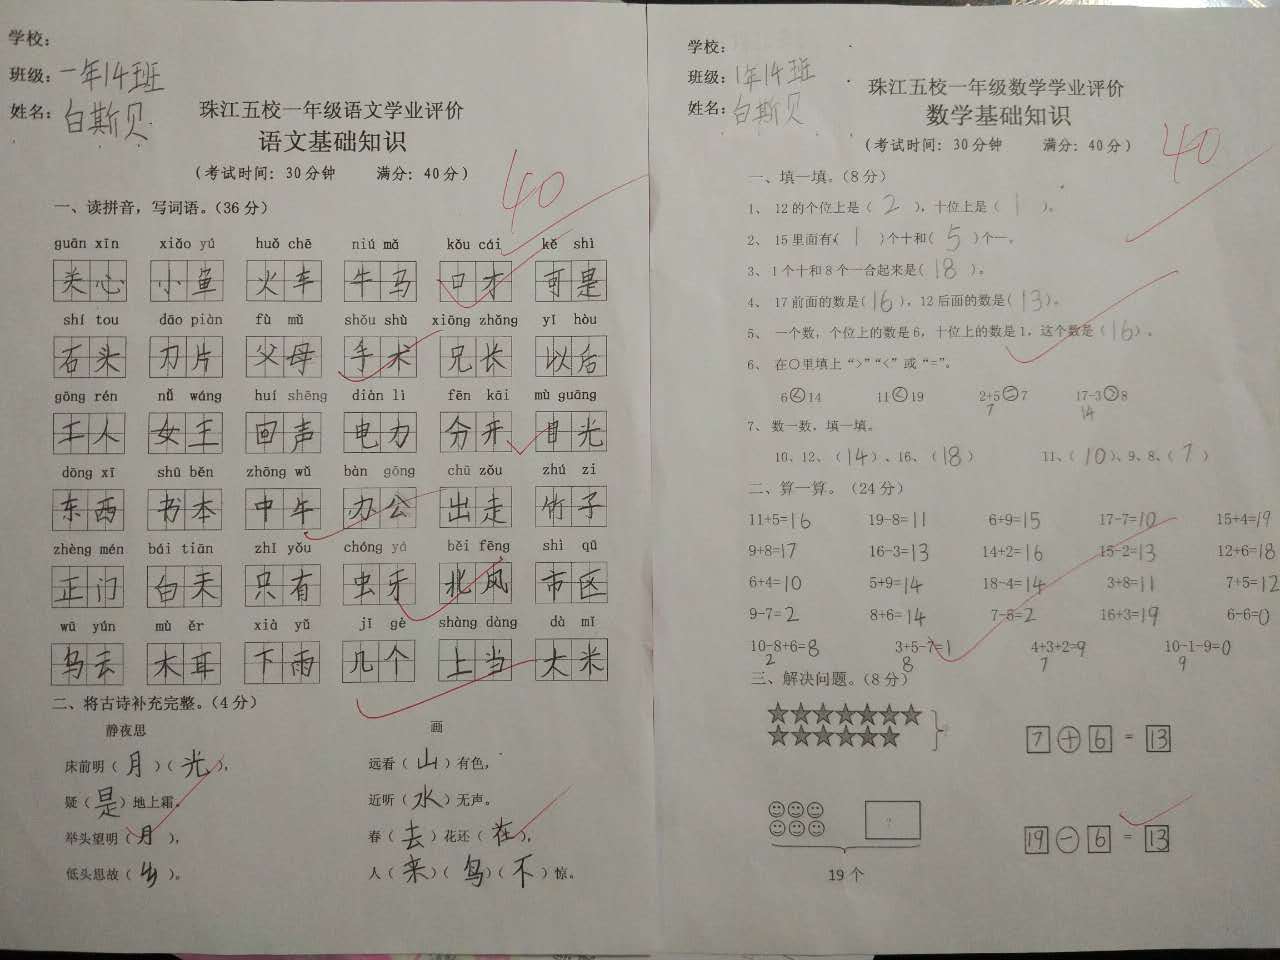 学校：
班级：一年14班
姓名：白斯贝
珠江五校一年级语文学业评价
语文基础知识
（考试时间：30分钟 满分：40分）
40
一、读拼音，写词语。（36分）
guān xīn xiǎo yú huǒ chē niú mǎ kǒu cái kě shì
关心 小鱼 火车 牛马 口才 可是
shí tou dāo piàn fù mǔ shǒu shù xiōng zhǎng yǐ hòu
石头 刀片 父母 手术 兄长 以后
gōng rén nǚ wáng huí shēng diàn lì fēn kāi mù guāng
工人 女王 回声 电力 分开 目光
dōng xī shū běn zhōng wǔ bàn gōng chū zǒu zhú zi
东西 书本 中午 办公 出走 竹子
zhèng mén bái tiān zhǐ yǒu chóng yá běi fēng shì qū
正门 白天 只有 虫牙 北风 市区
wū yún mù ěr xià yǔ jǐ gè shàng dàng dà mǐ
乌云 木耳 下雨 几个 上当 大米
二、将古诗补充完整。（4分）
静夜思
床前明（月）（光），
疑（是）地上霜。
举头望明（月），
低头思故（乡）。
画
远看（山）有色，
近听（水）无声。
春（去）花还（在），
人（来）（鸟）（不）惊。
学校：
班级：1年14班
姓名：白斯贝
珠江五校一年级数学学业评价
数学基础知识
（考试时间：30分钟 满分：40分）
40
一、填一填。（8分）
1、 12的个位上是（2），十位上是（1）。
2、 15里面有（1）个十和（5）个一。
3、 1个十和8个一合起来是（18）。
4、 17前面的数是（16），12后面的数是（13）。
5、 一个数，个位上的数是6，十位上的数是1，这个数是（16）。
6、 在○里填上“>”“<”或“=”。
6<14 11<19 2+5=7 17-3>8
7 14
7、 数一数，填一填。
10、12、（14）、16、（18） 11、（10）、9、8、（7）
二、算一算。（24分）
11+5=16 19-8=11 6+9=15 17-7=10 15+4=19
9+8=17 16-3=13 14+2=16 15-2=13 12+6=18
6+4=10 5+9=14 18-4=14 3+8=11 7+5=12
9-7=2 8+6=14 7-5=2 16+3=19 6-6=0
10-8+6=8 3+5-7=1 4+3+2=9 10-1-9=0
2 8 7 9
三、解决问题。（8分）
7+6=13
?
19-6=13
19个